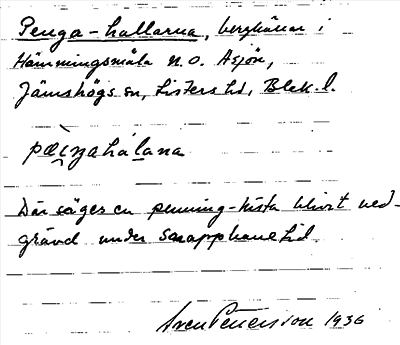 Penga-hallarna, berghällar i
Hämningsmåla n.o. Asjön,
Jämshögs sn, Listers hd, Blek. l.
Där säges en penning-kista blivit ned-
grävd under snapphanetid.
Sven Petersson 1936